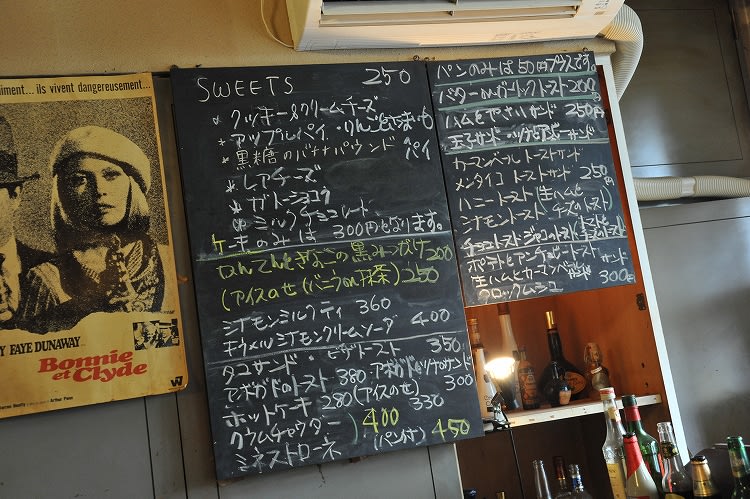 ...iment... ils vivent dangereusement...
Y FAYE DUNAWAY
Bonnie
et Clyde
W
SWEETS 250
クッキー&クリームチーズ
アップルパイ・りんごとさつまいも
パイ
黒糖のバナナパウンド
レアチーズ
ガトーショコラ
ミルクチョコレート
ケーキのみは 300円となります。
かんてんときなこの黒みつがけ200
(アイスのせ(バニラor抹茶) 250
シナモンミルクティ 360
キウイとシナモンクリームソーダ 400
タコサンド・ピザトースト 350
アボガドのトースト 380 アボガドとツナのサンド
ホットケーキ 280(アイスのせ) 300
330
クラムチャウダー 400
ミネストローネ (パン付) 450
パンのみは50円プラスです。
バターorガーリックトースト200
ハムとやさいサンド 250円
玉子サンド・ツナ サンド
カマンベールトーストサンド
メンタイコトーストサンド 250円
ハニートースト(生ハムと
シナモントースト チーズのトースト)
チョコトースト ジャムトースト
ポテトとアンチョビトーストサンド
生ハムとカマンベールサンド
クロックムシュ 300円